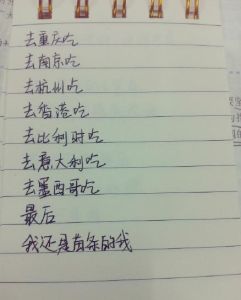 去重庆吃
去南京吃
去杭州吃
去香港吃
去比利时吃
去意大利吃
去墨西哥吃
最后
我还是苗条的我